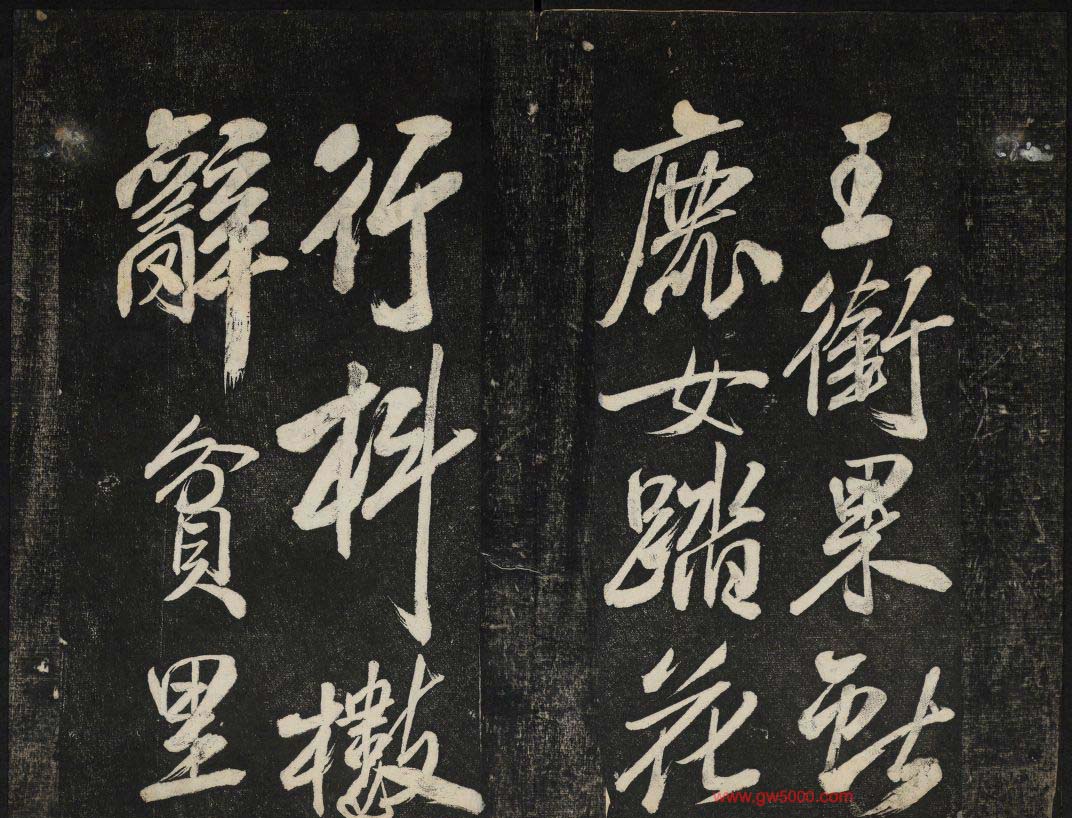 王銜果獻
鹿女踏花
行抖擻
辭貧里
www.gw5000.com